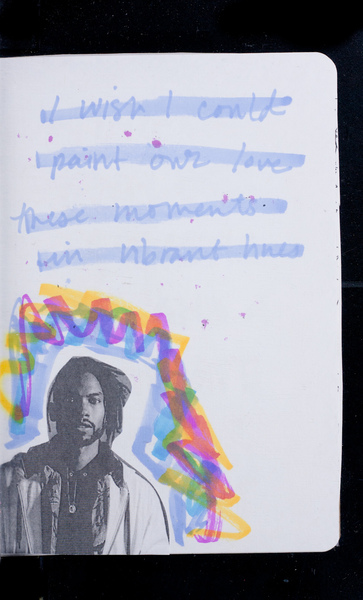 I wish I could
paint our love
these moments
in vibrant hues